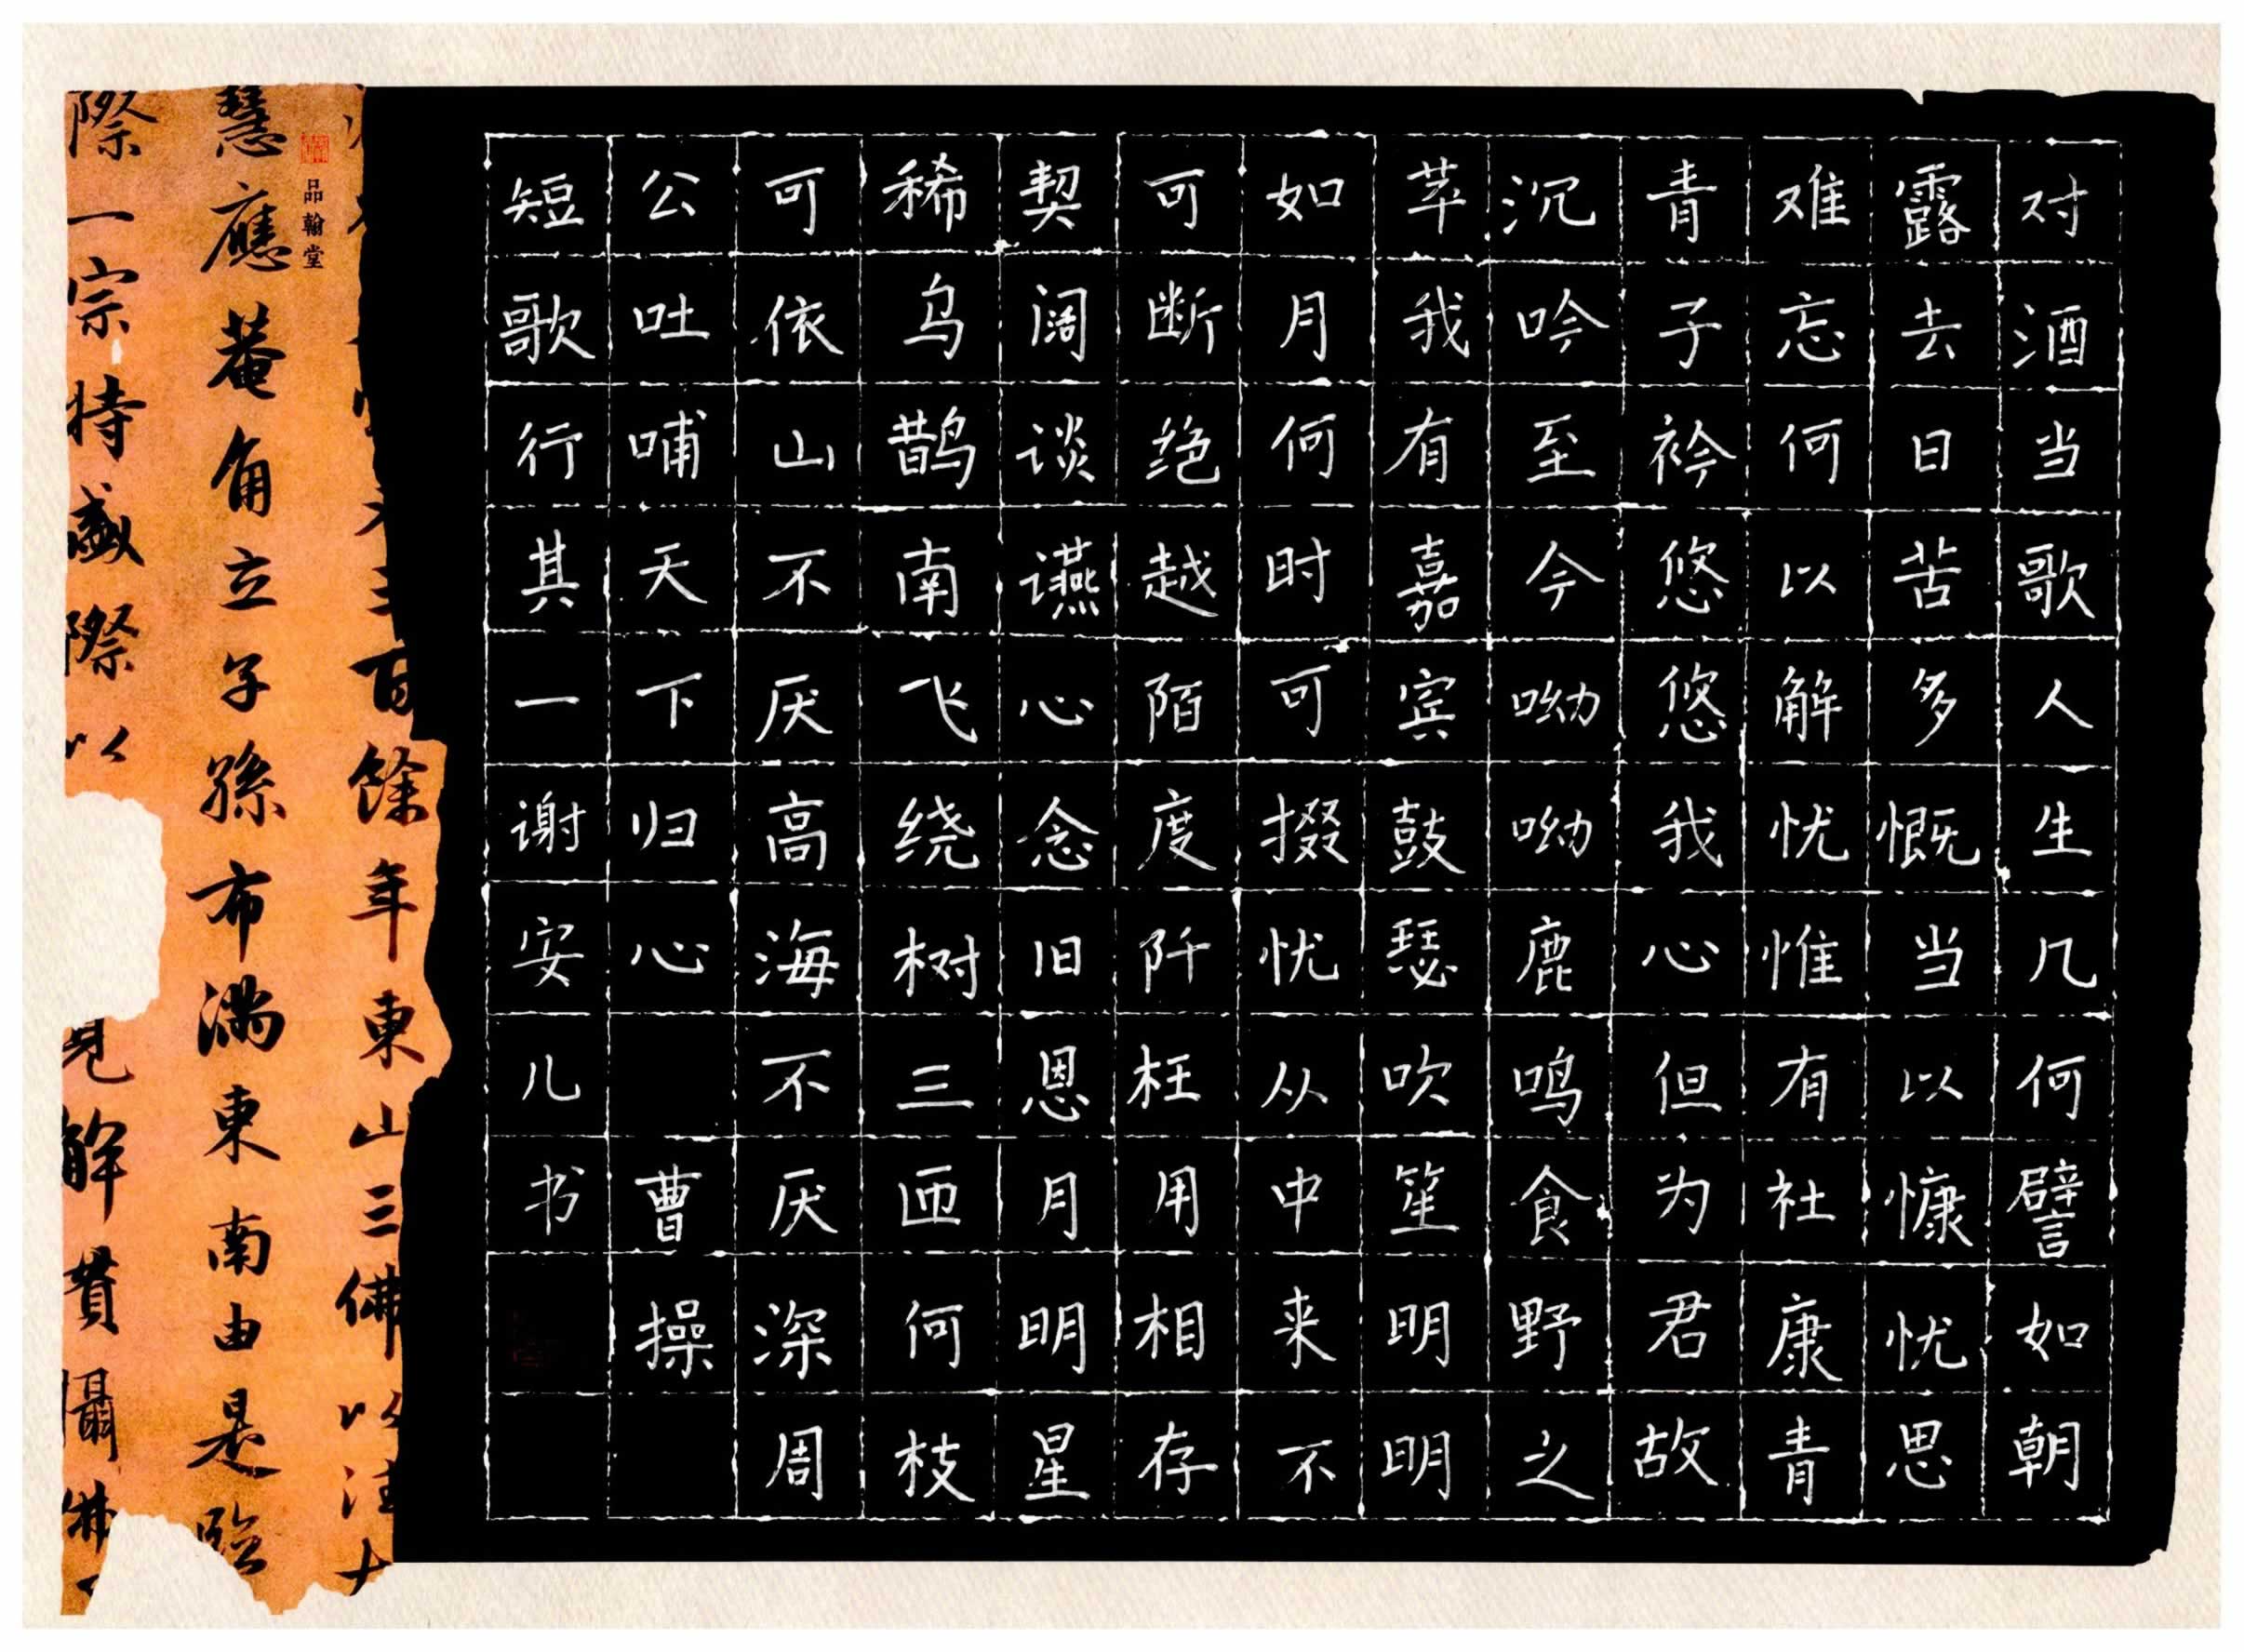 对酒当歌人生几何譬如朝
露去日苦多慨当以慷忧思
难忘何以解忧惟有社康青
青子衿悠悠我心但为君故
沉吟至今呦呦鹿鸣食野之
苹我有嘉宾鼓瑟吹笙明明
如月何时可掇忧从中来不
可断绝越陌度阡枉用相存
契阔谈䜩心念旧恩月明星
稀乌鹊南飞绕树三匝何枝
可依山不厌高海不厌深周
公吐哺天下归心 曹操
短歌行其一谢安儿书
百餘年東山三佛以法
品翰堂
慧應菴角立子孫布滿東南由是臨
際一宗特盛際以 見解貫攝佛